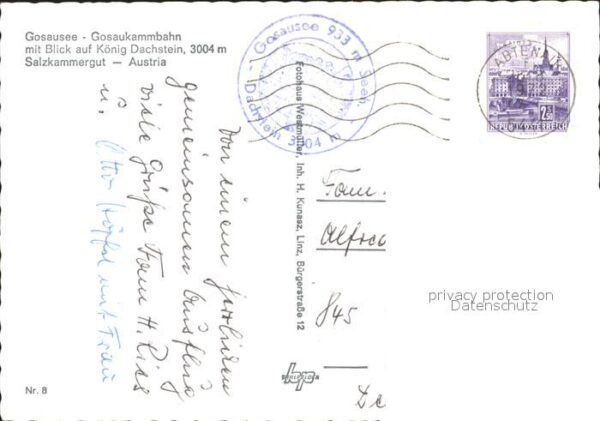 Gosausee - Gosaukammbahn
mit Blick auf König Dachstein, 3004 m
Salzkammergut — Austria
Gosausee 933 m Seeh.
Dachstein 3004 m
ABTENAU
2.50
REPUBLIK ÖSTERREICH
Fotohaus Westmüller, Inh. H. Kunasz, Linz, Bürgerstraße 12
Von einem
gemeinsamen Ausflug
viele Grüße Fam. H.
u.
mit Frau
Fam.
Alfred
845
privacy protection
Datenschutz
Nr. 8